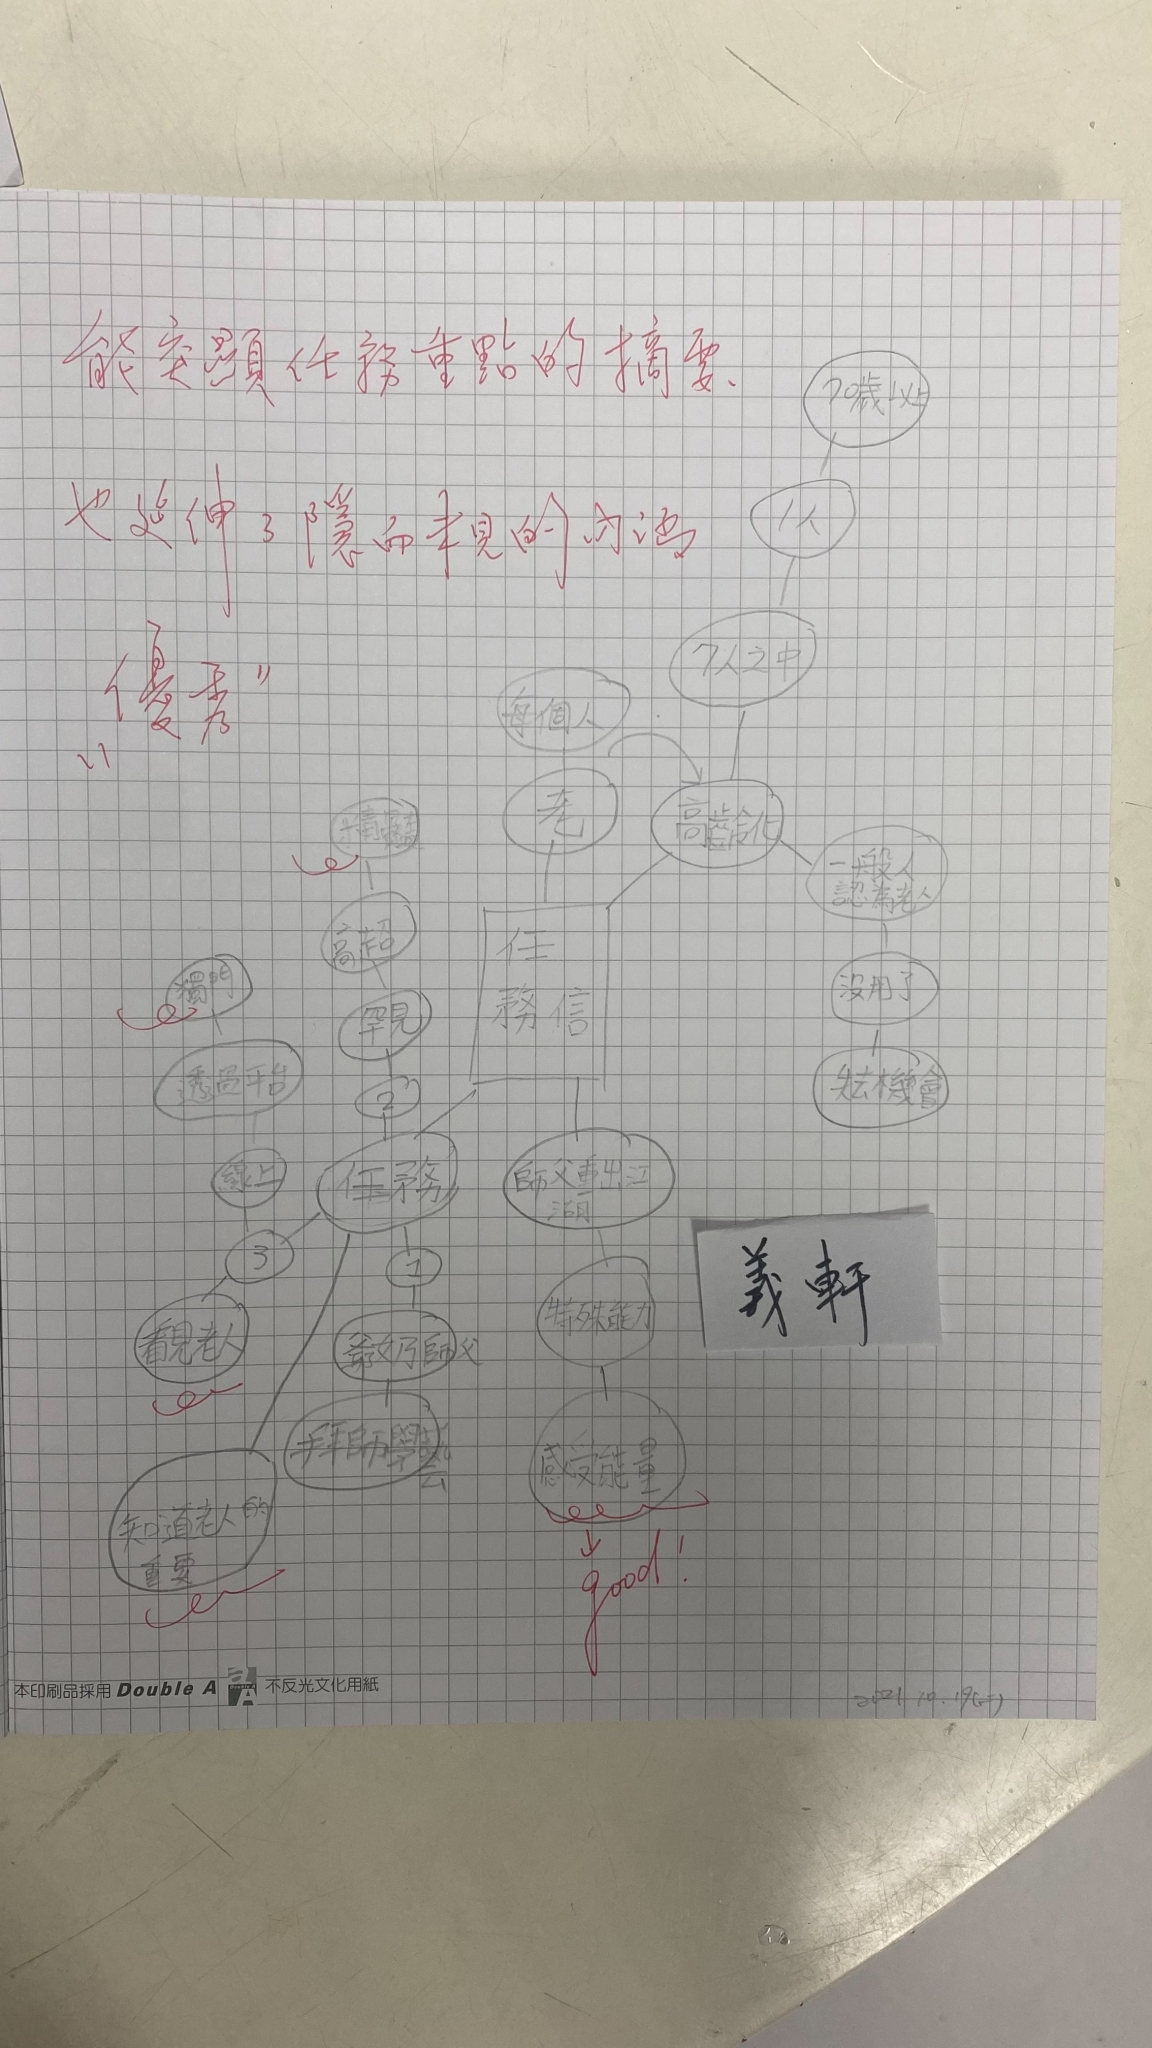 能突顯任務重點的摘要、
也延伸了隱而未見的內涵
"優秀"
70歲以上
1人
7人之中
每個人
老
高齡化
一般人
認為老人
沒用了
失去機會
任
務信
精髓
高超
罕見
2
獨門
透過平台
線上
3
任務
1
看見老人
爺奶師父
拜師學藝
知道老人的
重要
師父重出江
湖
特殊能力
感受能量
good!
義軒
本印刷品採用 Double A 不反光文化用紙
2021.10.19(二)